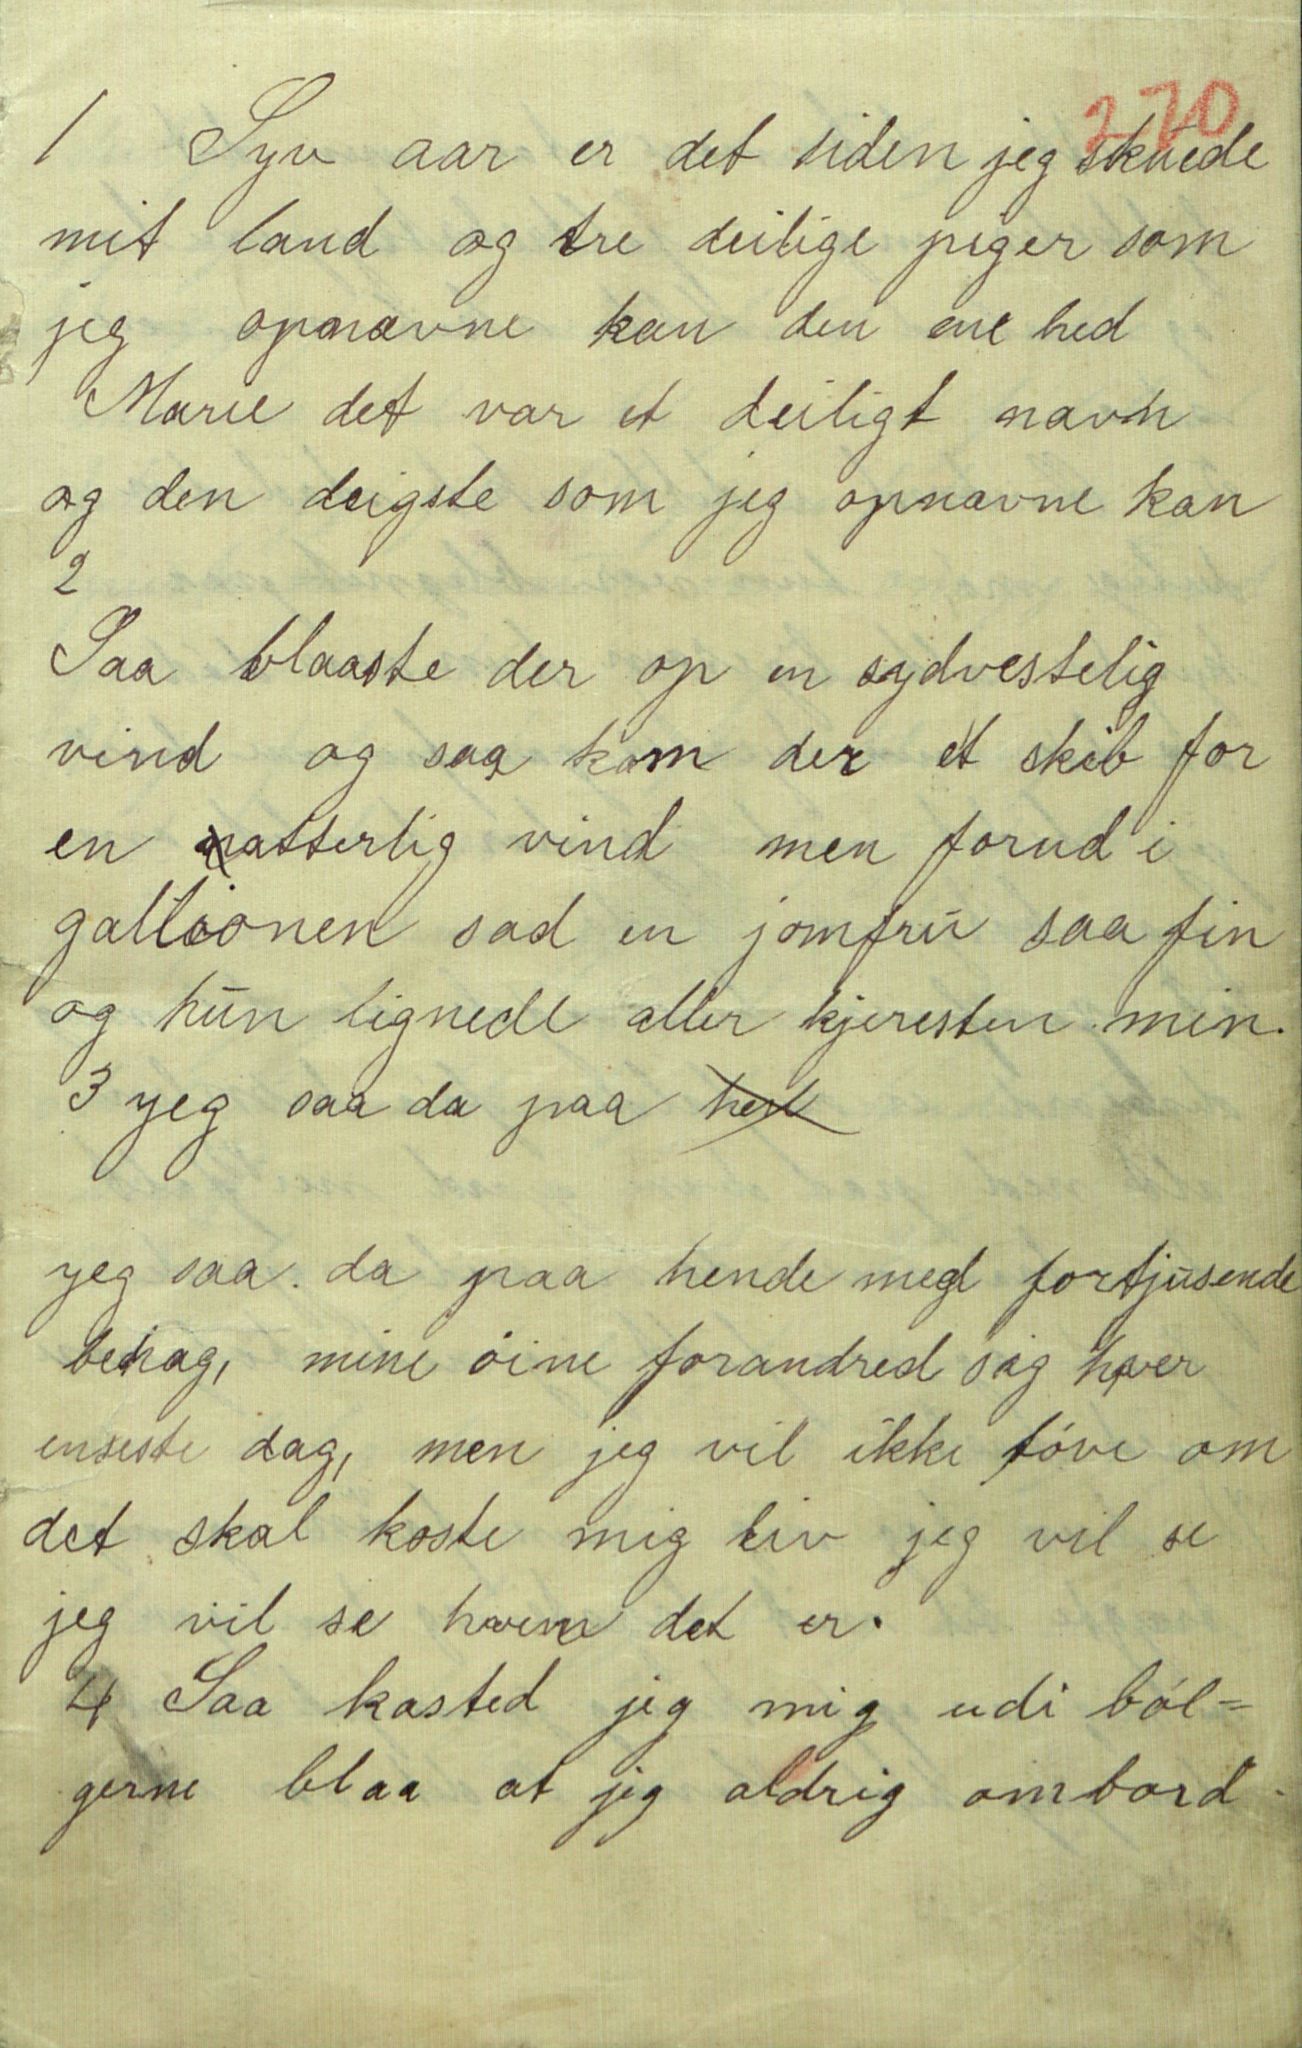 270
1 Syv aar er det siden jeg skuede
mit land og tre deilige peger som
jeg opnævne kan den ene hed
Marie det var et deiligt navn
og den deigste som jeg opnavne kan
2
Saa blaaste der op en sydvestelig
vind og saa kom der et skib for
en natterlig vind men forud i
gallionen sad en jomfru saa fin
og hun lignede aller kjeresten min.
3 yeg saa da paa
yeg saa. da paa hende med fortjusende
behag, mine öine forandred sig hver
enseste dag, men jeg vil ikke töve om
det skal koste mig liv jeg vil se
jeg vil se hvem det er.
4 Saa kasted jeg mig udi böl=
gerne blaa at jeg aldrig ombord